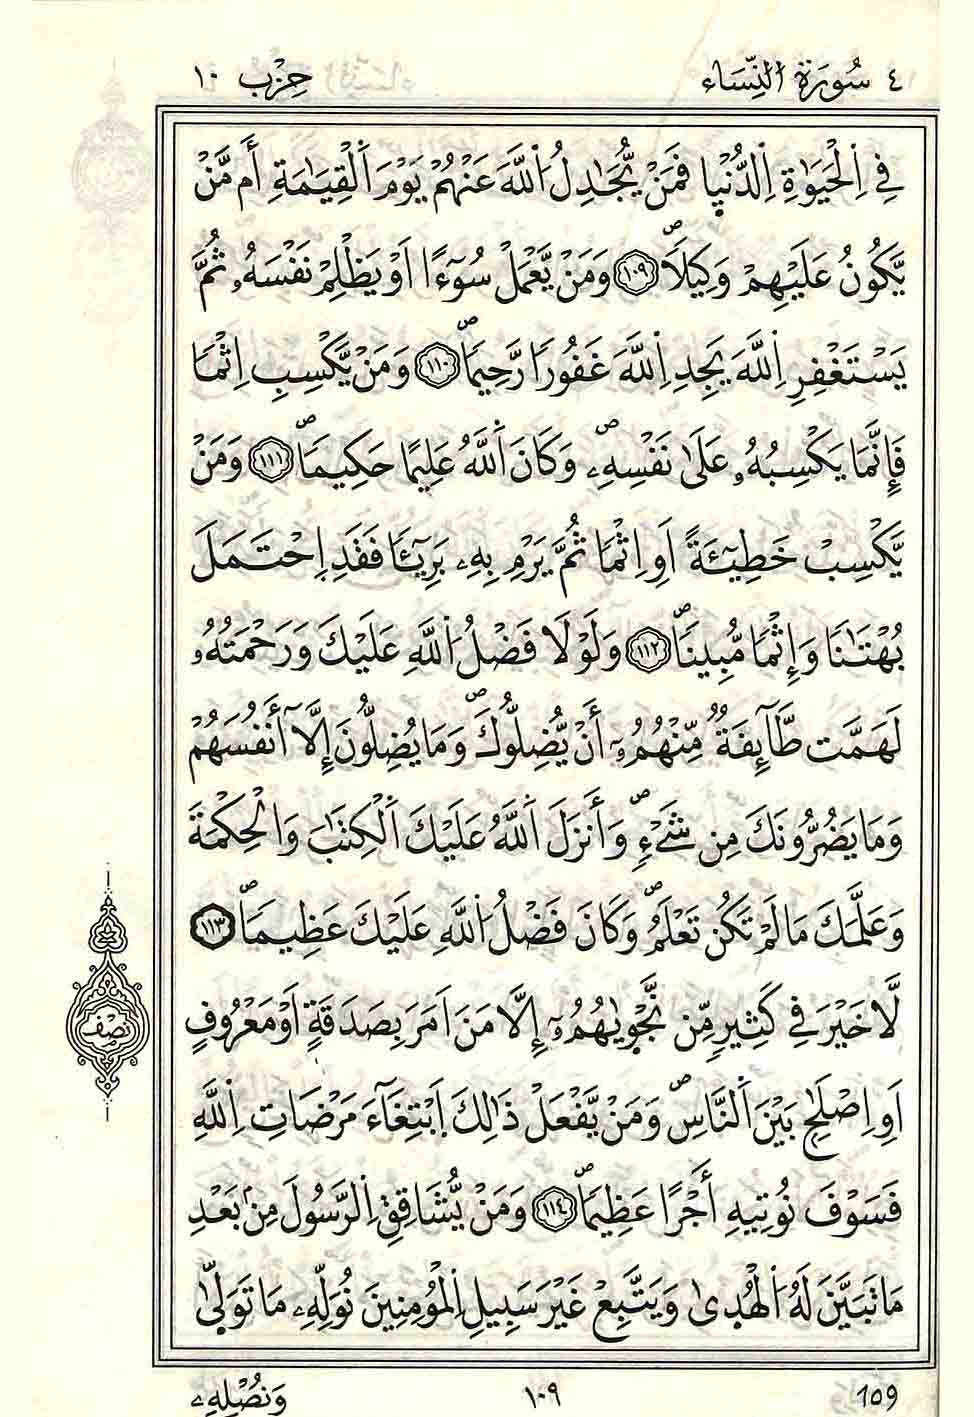 ٤ سُورَةُ النِّسَاء حِزْب ١٠
فِے اِ۬لْحَيَوٰةِ اِ۬لدُّنْي۪ا فَمَنْ يُّجَٰدِلُ اُ۬للَّهَ عَنْهُمْ يَوْمَ اَ۬لْقِيَٰمَةِ أَم مَّنْ
يَّكُونُ عَلَيْهِمْ وَكِيلاٗۖ ١٠٩ وَمَنْ يَّعْمَلْ سُوٓءاً اَوْ يَظْلِمْ نَفْسَهُۥ ثُمَّ
يَسْتَغْفِرِ اِ۬للَّهَ يَجِدِ اِ۬للَّهَ غَفُوراٗ رَّحِيماٗۖ ١١٠ وَمَنْ يَّكْسِبِ اِثْماٗ
فَإِنَّمَا يَكْسِبُهُۥ عَلَىٰ نَفْسِهِۦۖ وَكَانَ اَ۬للَّهُ عَلِيماً حَكِيماٗۖ ١١١ وَمَنْ
يَّكْسِبْ خَطِيٓـَٔةً اَوِ اِثْماٗ ثُمَّ يَرْمِ بِهِۦ بَرِيٓـٔاٗ فَقَدِ اِ۪حْتَمَلَ
بُهْتَٰناٗ وَإِثْماٗ مُّبِيناٗۖ ١١٢ وَلَوْلَا فَضْلُ اُ۬للَّهِ عَلَيْكَ وَرَحْمَتُهُۥ
لَهَمَّت طَّآئِفَةٞ مِّنْهُمُۥٓ أَنْ يُّضِلُّوكَۖ وَمَا يُضِلُّونَ إِلَّآ أَنفُسَهُمْ
وَمَا يَضُرُّونَكَ مِن شَےْءٖۖ وَأَنزَلَ اَ۬للَّهُ عَلَيْكَ اَ۬لْكِتَٰبَ وَالْحِكْمَةَ
وَعَلَّمَكَ مَا لَمْ تَكُن تَعْلَمُۖ وَكَانَ فَضْلُ اُ۬للَّهِ عَلَيْكَ عَظِيماٗۖ ١١٣
نِصْف
لَّا خَيْرَ فِے كَثِيرٖ مِّن نَّجْو۪يٰهُمُۥٓ إِلَّا مَنَ اَمَرَ بِصَدَقَةٍ اَوْ مَعْرُوفٍ
اَوِ اِصْلَٰحِۢ بَيْنَ اَ۬لنَّاسِۖ وَمَنْ يَّفْعَلْ ذَٰلِكَ اَ۪بْتِغَآءَ مَرْضَاتِ اِ۬للَّهِ
فَسَوْفَ نُوتِيهِ أَجْراً عَظِيماٗۖ ١١٤ وَمَنْ يُّشَاقِقِ اِ۬لرَّسُولَ مِنۢ بَعْدِ
مَا تَبَيَّنَ لَهُ اُ۬لْهُد۪ىٰ وَيَتَّبِعْ غَيْرَ سَبِيلِ اِ۬لْمُومِنِينَ نُوَلِّهِۦ مَا تَوَلّ۪ىٰ
159 ١٠٩ وَنُصْلِهِۦ